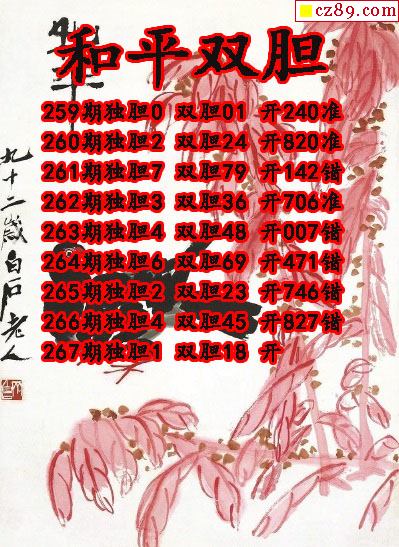 cz89.com
和平
和平双胆
259期独胆0 双胆01 开240准
260期独胆2 双胆24 开820准
261期独胆7 双胆79 开142错
262期独胆3 双胆36 开706准
263期独胆4 双胆48 开007错
264期独胆6 双胆69 开471错
265期独胆2 双胆23 开746错
266期独胆4 双胆45 开827错
267期独胆1 双胆18 开
九十二岁白石老人